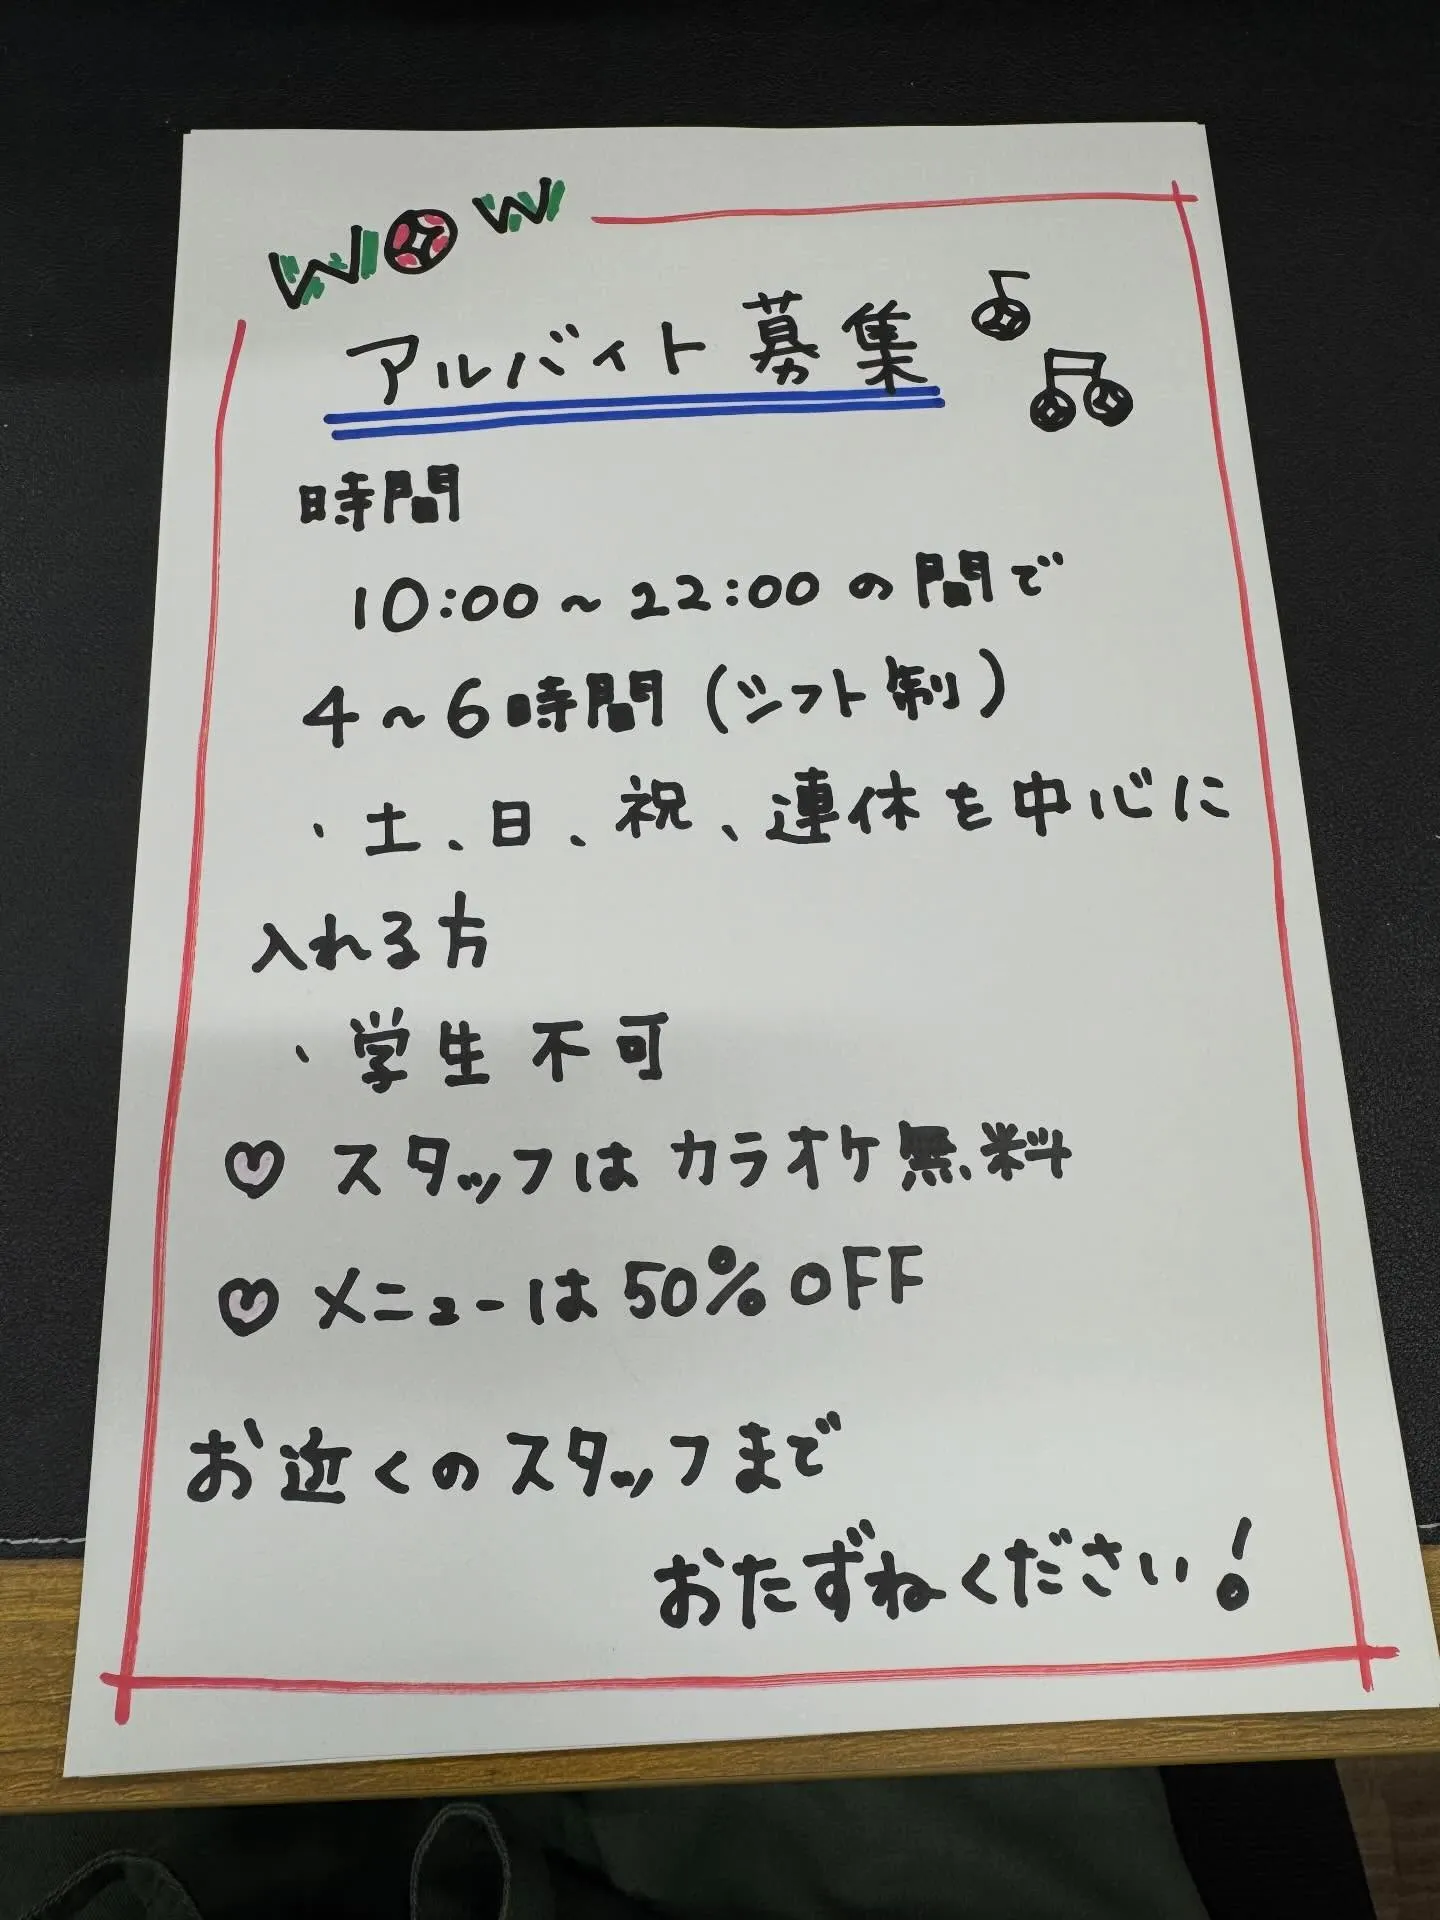 WOW
アルバイト募集
時間
10:00～22:00の間で
4～6時間(シフト制)
・土、日、祝、連休を中心に
入れる方
・学生不可
♡ スタッフはカラオケ無料
♡ メニューは50%OFF
お近くのスタッフまで
おたずねください!